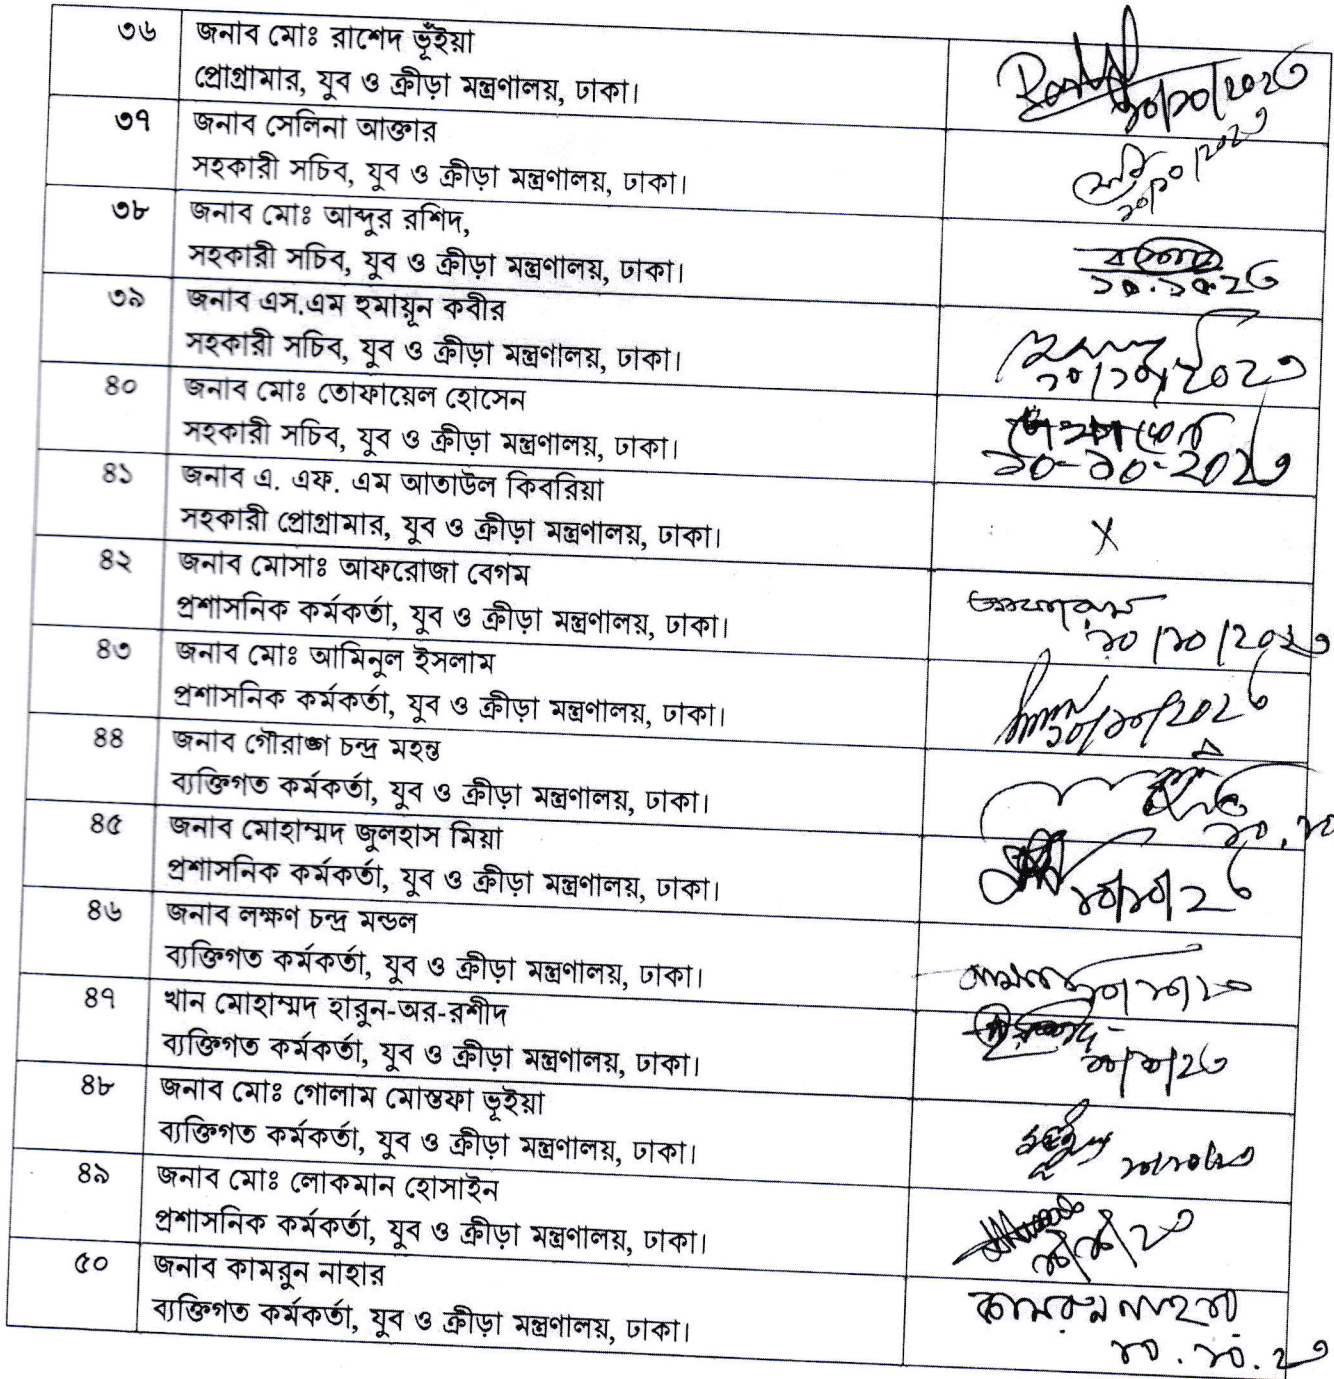 ৩৬ জনাব মোঃ রাশেদ ভূঁইয়া
প্রোগ্রামার, যুব ও ক্রীড়া মন্ত্রণালয়, ঢাকা।
১০/১০/২০২৩
৩৭ জনাব সেলিনা আক্তার
সহকারী সচিব, যুব ও ক্রীড়া মন্ত্রণালয়, ঢাকা।
১০/১০/২০২৩
৩৮ জনাব মোঃ আব্দুর রশিদ,
সহকারী সচিব, যুব ও ক্রীড়া মন্ত্রণালয়, ঢাকা।
১০.১০.২৩
৩৯ জনাব এস.এম হুমায়ূন কবীর
সহকারী সচিব, যুব ও ক্রীড়া মন্ত্রণালয়, ঢাকা।
১০/১০/২০২৩
৪০ জনাব মোঃ তোফায়েল হোসেন
সহকারী সচিব, যুব ও ক্রীড়া মন্ত্রণালয়, ঢাকা।
১০-১০-২০২৩
৪১ জনাব এ. এফ. এম আতাউল কিবরিয়া
সহকারী প্রোগ্রামার, যুব ও ক্রীড়া মন্ত্রণালয়, ঢাকা।
X
৪২ জনাব মোসাঃ আফরোজা বেগম
প্রশাসনিক কর্মকর্তা, যুব ও ক্রীড়া মন্ত্রণালয়, ঢাকা।
১০/১০/২০২৩
৪৩ জনাব মোঃ আমিনুল ইসলাম
প্রশাসনিক কর্মকর্তা, যুব ও ক্রীড়া মন্ত্রণালয়, ঢাকা।
১০/১০/২০২৩
৪৪ জনাব গৌরাঙ্গ চন্দ্র মহন্ত
ব্যক্তিগত কর্মকর্তা, যুব ও ক্রীড়া মন্ত্রণালয়, ঢাকা।
১০.১০
৪৫ জনাব মোহাম্মদ জুলহাস মিয়া
প্রশাসনিক কর্মকর্তা, যুব ও ক্রীড়া মন্ত্রণালয়, ঢাকা।
১০/১০/২৩
৪৬ জনাব লক্ষণ চন্দ্র মন্ডল
ব্যক্তিগত কর্মকর্তা, যুব ও ক্রীড়া মন্ত্রণালয়, ঢাকা।
১০/১০/২৩
৪৭ খান মোহাম্মদ হারুন-অর-রশীদ
ব্যক্তিগত কর্মকর্তা, যুব ও ক্রীড়া মন্ত্রণালয়, ঢাকা।
১০/১০/২৩
৪৮ জনাব মোঃ গোলাম মোস্তফা ভূইয়া
ব্যক্তিগত কর্মকর্তা, যুব ও ক্রীড়া মন্ত্রণালয়, ঢাকা।
১০/১০/২৩
৪৯ জনাব মোঃ লোকমান হোসাইন
প্রশাসনিক কর্মকর্তা, যুব ও ক্রীড়া মন্ত্রণালয়, ঢাকা।
১০/১০/২৩
৫০ জনাব কামরুন নাহার
ব্যক্তিগত কর্মকর্তা, যুব ও ক্রীড়া মন্ত্রণালয়, ঢাকা।
কামরুন নাহার
১০.১০.২৩